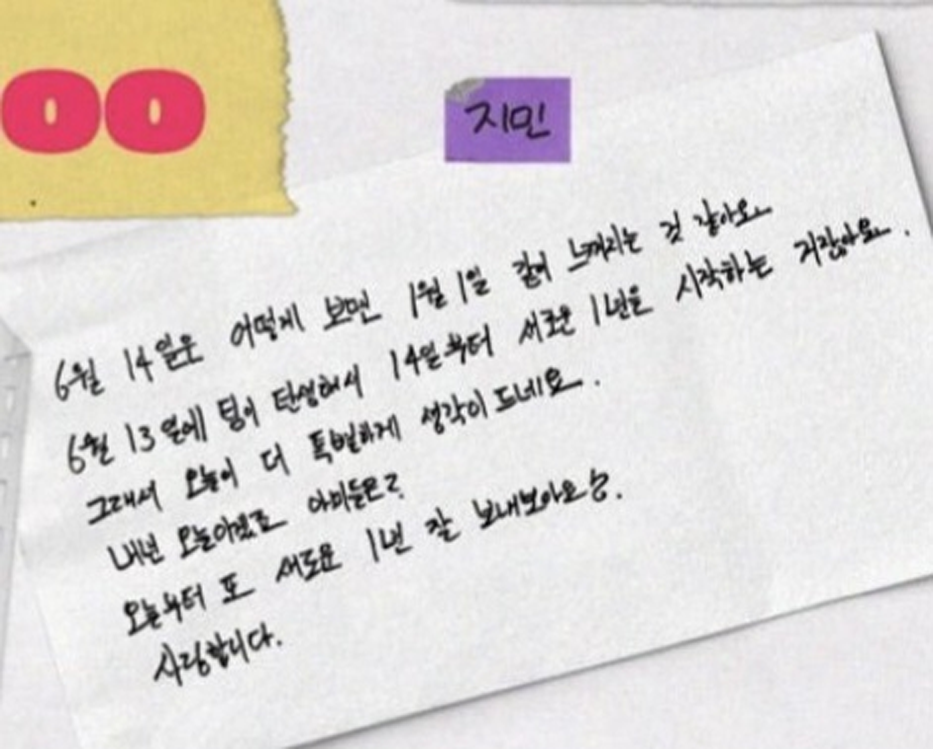 OO
지민
6월 14일은 어떻게 보면 1월 1일 같이 느껴지는 것 같아요
6월 13일에 팀이 탄생해서 14일부터 새로운 1년을 시작하는 거잖아요.
그래서 오늘이 더 특별하게 생각이 드네요.
내년 오늘이겠죠 아미들은?
오늘부터 또 새로운 1년 잘 보내보아요
사랑합니다.